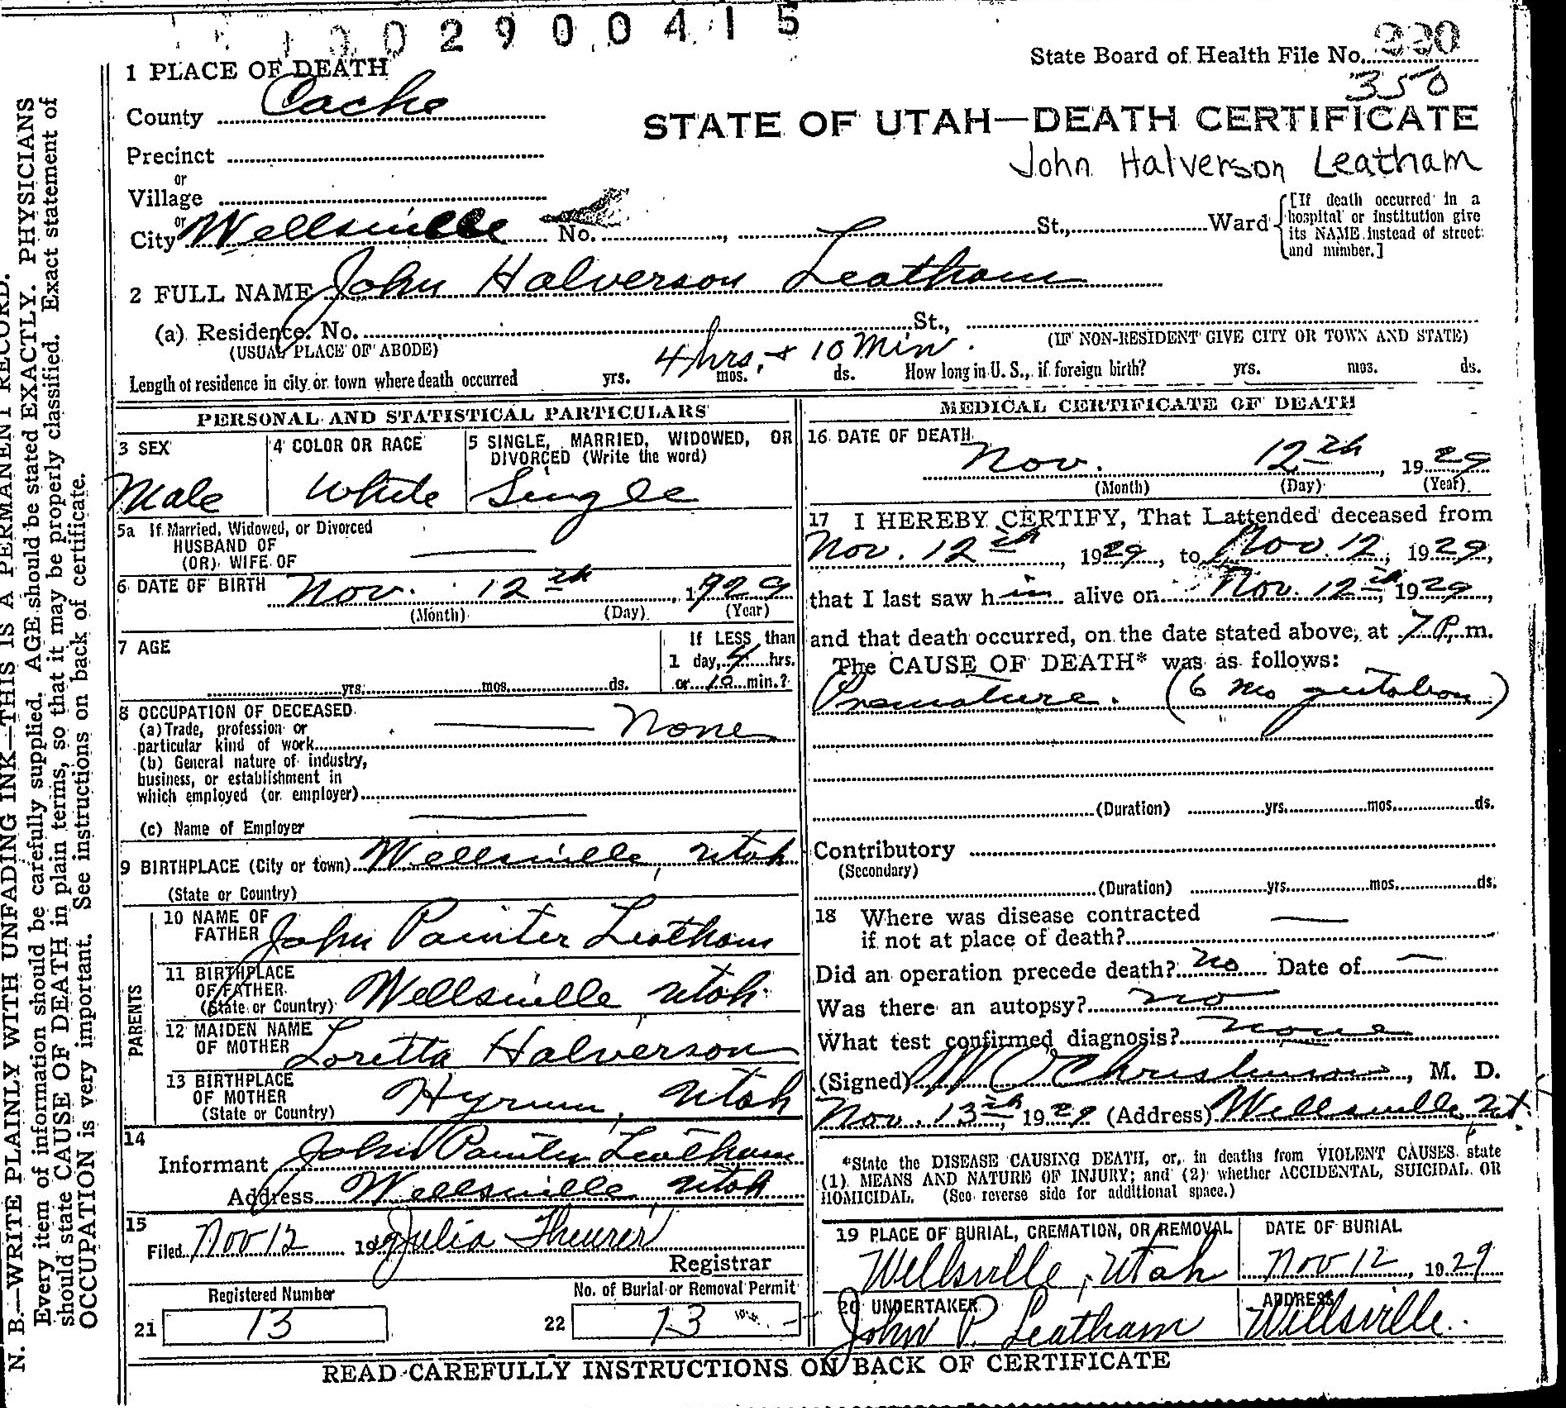 1002900415
State Board of Health File No. 990
350
1 PLACE OF DEATH
County Cache
STATE OF UTAH—DEATH CERTIFICATE
John Halverson Leatham
Precinct
or
Village
or
City Wellsville No. St., Ward
[If death occurred in a hospital or institution give its NAME instead of street and number.]
2 FULL NAME John Halverson Leatham
(a) Residence. No. St.,
(USUAL PLACE OF ABODE) (IF NON-RESIDENT GIVE CITY OR TOWN AND STATE)
4 hrs. + 10 Min.
Length of residence in city or town where death occurred yrs. mos. ds. How long in U. S., if foreign birth? yrs. mos. ds.
PERSONAL AND STATISTICAL PARTICULARS
3 SEX Male
4 COLOR OR RACE White
5 SINGLE, MARRIED, WIDOWED, OR DIVORCED (Write the word) Single
5a If Married, Widowed, or Divorced
HUSBAND OF
(OR) WIFE OF
6 DATE OF BIRTH Nov. 12th, 1929
(Month) (Day) (Year)
7 AGE
yrs. mos. ds.
If LESS than
1 day, 4 hrs.
or 10 min.?
8 OCCUPATION OF DECEASED
(a) Trade, profession or
particular kind of work None
(b) General nature of industry,
business, or establishment in
which employed (or employer)
(c) Name of Employer
9 BIRTHPLACE (City or town) Wellsville, Utah
(State or Country)
PARENTS
10 NAME OF FATHER John Painter Leatham
11 BIRTHPLACE OF FATHER (State or Country) Wellsville Utah
12 MAIDEN NAME OF MOTHER Loretta Halverson
13 BIRTHPLACE OF MOTHER (State or Country) Hyrum, Utah
14
Informant John Painter Leatham
Address Wellsville Utah
15
Filed Nov 12 19 Julia Theurer
Registrar
Registered Number
21 13
No. of Burial or Removal Permit
22 13
MEDICAL CERTIFICATE OF DEATH
16 DATE OF DEATH
Nov. 12th, 1929
(Month) (Day) (Year)
17 I HEREBY CERTIFY, That I attended deceased from
Nov. 12th, 1929, to Nov 12, 1929,
that I last saw him alive on Nov. 12th, 1929,
and that death occurred, on the date stated above, at 7 P. m.
The CAUSE OF DEATH* was as follows:
Premature. (6 mo gestation)
(Duration) yrs. mos. ds.
Contributory
(Secondary)
(Duration) yrs. mos. ds.
18 Where was disease contracted
if not at place of death?
Did an operation precede death? no Date of
Was there an autopsy? no
What test confirmed diagnosis? none
(Signed) W O Christenson, M. D.
Nov. 13th, 1929 (Address) Wellsville, Ut.
*State the DISEASE CAUSING DEATH, or, in deaths from VIOLENT CAUSES, state
(1) MEANS AND NATURE OF INJURY; and (2) whether ACCIDENTAL, SUICIDAL OR
HOMICIDAL. (See reverse side for additional space.)
19 PLACE OF BURIAL, CREMATION, OR REMOVAL
Wellsville, Utah
DATE OF BURIAL
Nov 12, 1929
20 UNDERTAKER
John P. Leatham
ADDRESS
Wellsville.
READ CAREFULLY INSTRUCTIONS ON BACK OF CERTIFICATE
N. B.—WRITE PLAINLY WITH UNFADING INK—THIS IS A PERMANENT RECORD.
Every item of information should be carefully supplied. AGE should be stated EXACTLY. PHYSICIANS
should state CAUSE OF DEATH in plain terms, so that it may be properly classified. Exact statement of
OCCUPATION is very important. See instructions on back of certificate.